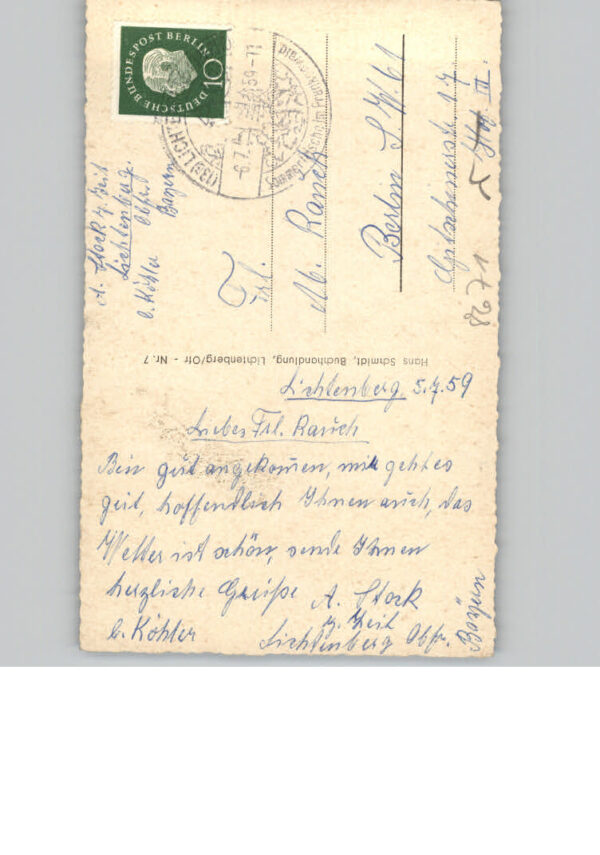 Lichtenberg, 5.7.59
Liebes Frl. Rauch
Bin gut angekommen, mir geht es
gut, hoffendlich Ihnen auch, das
Wetter ist schön, sende Ihnen
herzliche Grüße A. Stock
b. Köhler z. Zeit
Lichtenberg Obfr.
Bayern
Hans Schmidt, Buchhandlung, Lichtenberg/Ofr - Nr. 7
A. Stock z. Zeit
Lichtenberg.
b. Köhler Obfr.
Bayern
DEUTSCHE BUNDESPOST BERLIN
10
-6.7.59-11
Sommerfrische im Fran
Frl.
M. Rauch
Berlin S.W 61
17
III.
1728